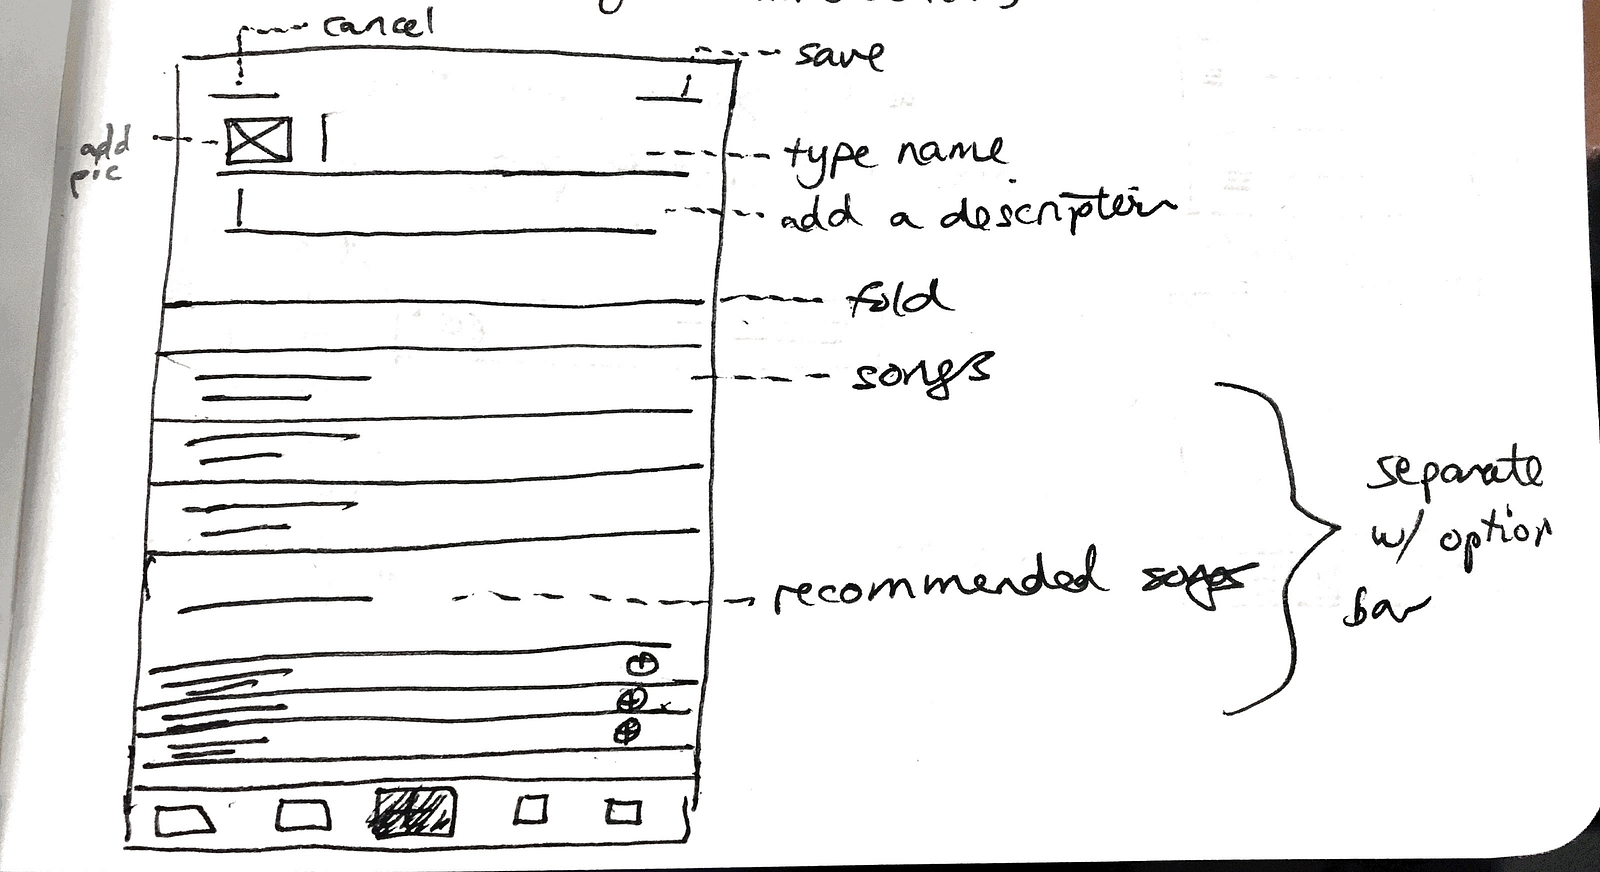 cancel
save
add
pic
type name
add a description
fold
songs
recommended songs
separate
w/ option
bar